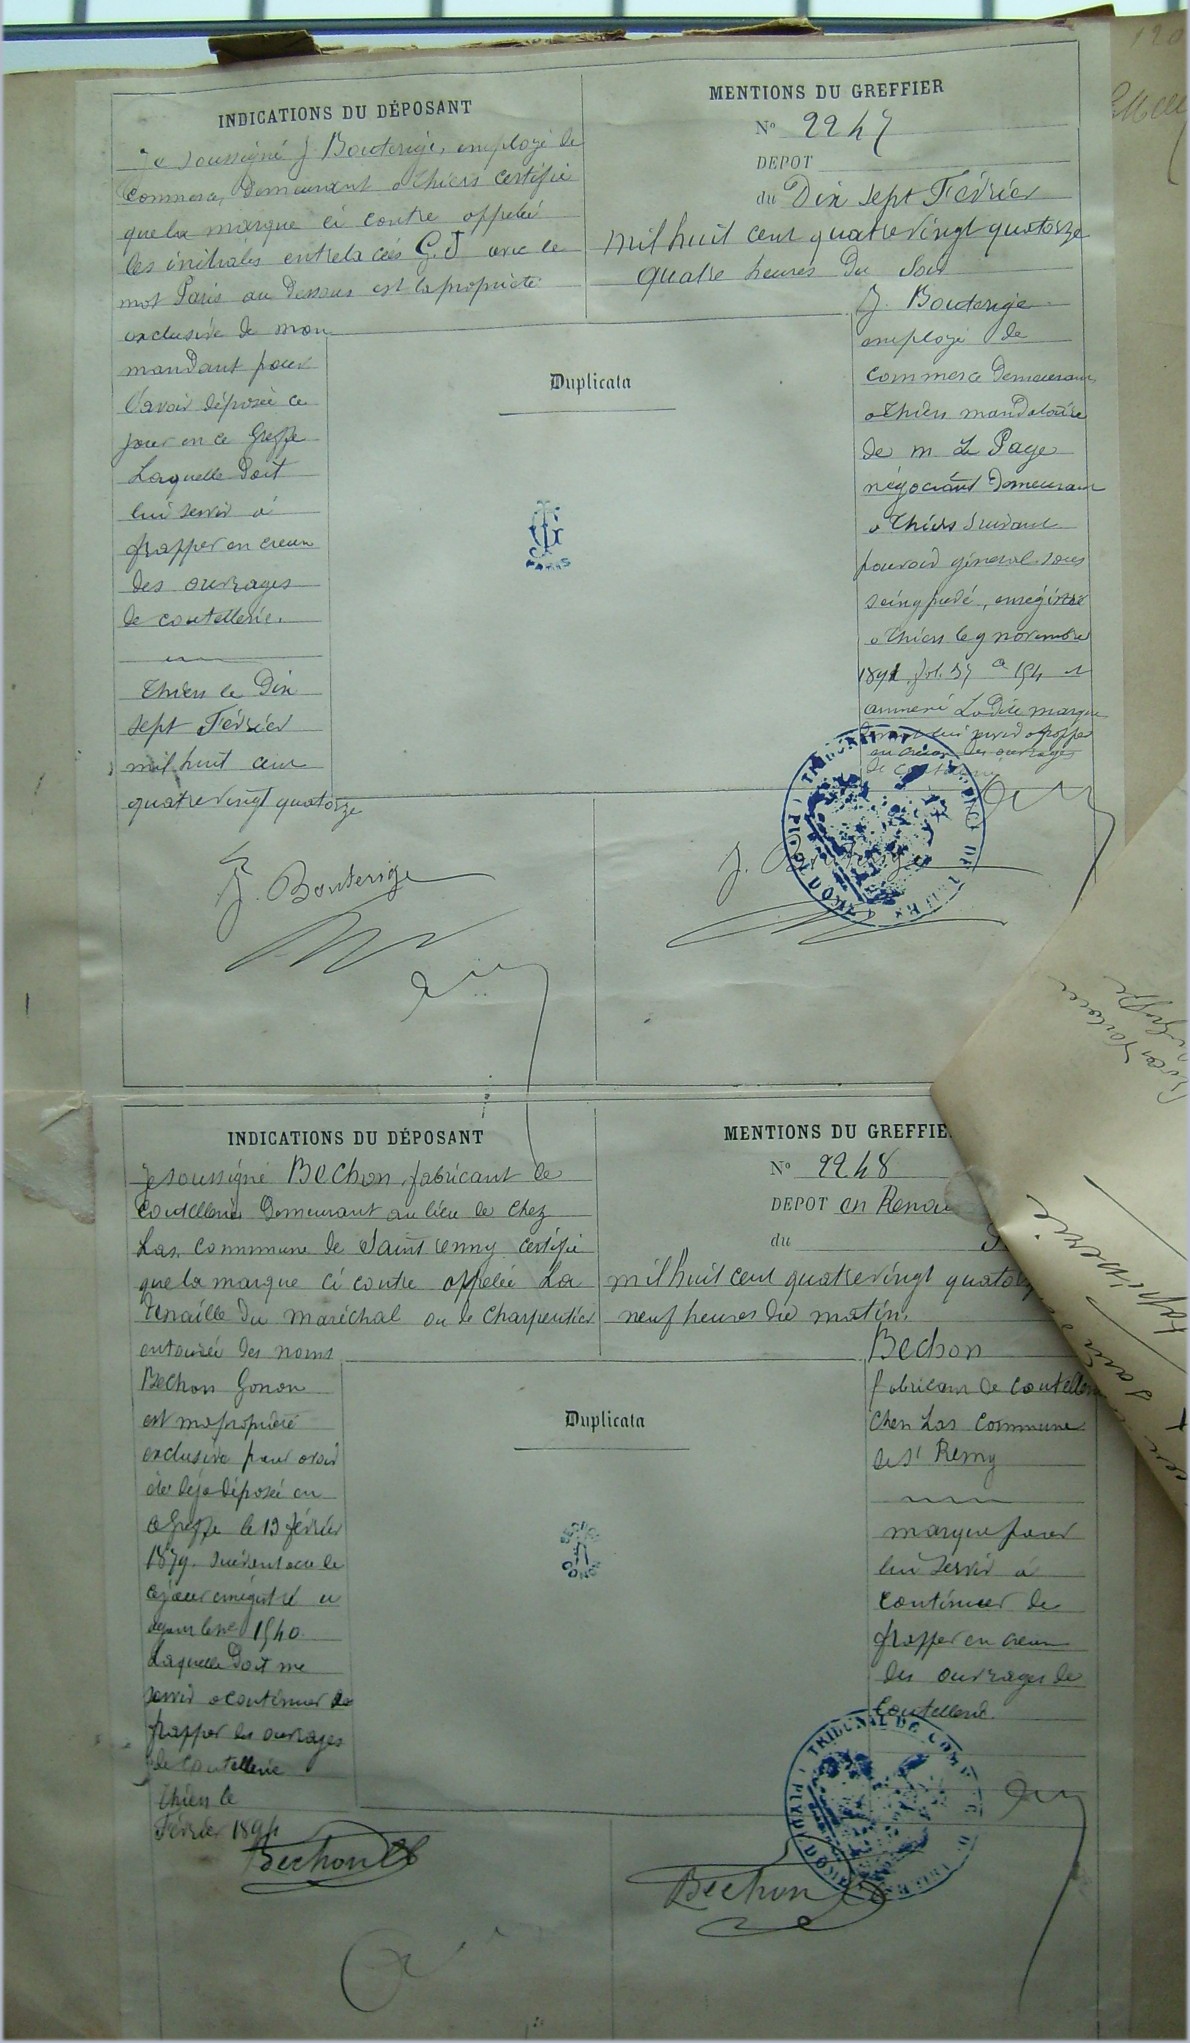 INDICATIONS DU DÉPOSANT
Je soussigné J. Bouterige, employé de
commerce, Demeurant a Thiers certifie
que la marque ci contre appelée
les initiales entrelacées G.J avec le
mot Paris au Dessous est la propriété
exclusive de mon
mandant pour
l'avoir déposée ce
jour en ce Greffe
Laquelle Doit
lui servir a
frapper en creux
des ouvrages
de coutellerie.
Thiers le Dix
sept Février
mil huit cent
quatrevingt quatorze
J. Bouterige
MENTIONS DU GREFFIER
N° 2247
DEPOT
du Dix sept Février
mil huit cent quatrevingt quatorze
quatre heures Du Soir
J. Bouterige
employé de
commerce Demeurant
a Thiers mandataire
de m Le Page
négociant Demeurant
a Thiers suivant
pouvoir général sous
seing privé, enregistré
a Thiers le 9 novembre
Ladite marque
Duplicata
PARIS
J. Bouterige
INDICATIONS DU DÉPOSANT
Je soussigné Bechon, fabricant de
Coutellerie Demeurant au lieu de Chez
Las, Commune de Saint remy certifie
que la marque Ci contre appelée La
Tenaille Du maréchal ou le Charpentier
entourée des noms
Bechon Gonon
est ma propriété
exclusive pour avoir
été déjà déposée en
ce Greffe le 13 février
1879.
1540
Laquelle Doit me
servir a continuer de
frapper les ouvrages
de Coutellerie
Thiers le
Février 1894
Bechon
MENTIONS DU GREFFIE
N° 2248
DEPOT en Renou
du
mil huit cent quatrevingt quator
neuf heures du matin.
Bechon
fabricant de Coutellerie
Chez Las Commune
de St Remy
marque pour
lui servir a
continuer de
frapper en creux
des ouvrages de
Coutellerie.
Duplicata
BECHON
GONON
TRIBUNAL DE COM
Bechon